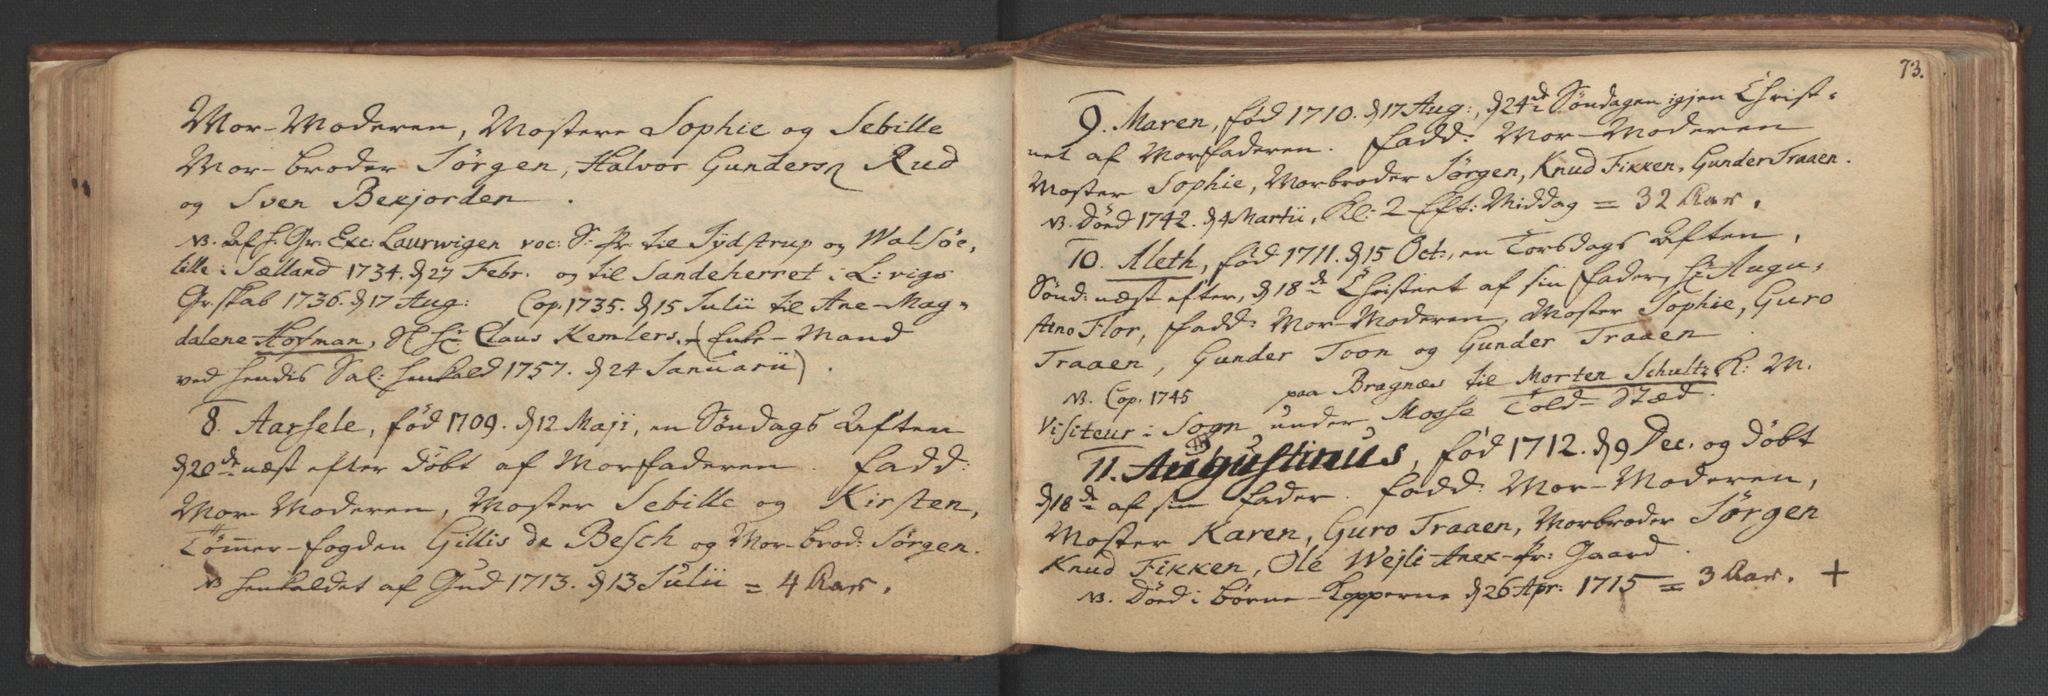 Mor-Moderen, Mostere Sophie og Sebille
Mor-broder Jørgen, Halvor Gunders. Rud
og Sven Bekjorden.
NB. Af H. Gr. Exc: Laurwigen voc: S: Pr. til Jydstrup og Walsøe,
lille i Sælland 1734. d 27 Febr. og til Sandeherret i L:vigs
Gr.skab 1736. d 17 Aug: Cop. 1735. d 15 Julii til Ane-Mag=
dalene Hofman, Sl. Hr. Claus Kemlers. (Enke-Mand
ved hendis Sal: henkald 1757. d 24 Januarii).
8. Aarsele, fød 1709. d 12 Maji, en Søndags Aften
d 20de næst efter døbt af Morfaderen. Fadd:
Mor-Moderen, Moster Sebille og Kirsten,
Tømmer-fogden Gillis de Besch og Mor-brod: Jørgen.
NB henkaldet af Gud 1713. d 13 Julii = 4 Aar.
73.
9. Maren, fød 1710. d 17 Aug:, d 24de Søndagen igjen Christ=
net af Morfaderen. Fadd: Mor-Moderen
Moster Sophie, Morbroder Jørgen, Knud Fikken, Gunder Traaen.
NB. Døed 1742. d 4 Martii, Kl: 2 Eft: Middag = 32 Aar.
10. Aleth, fød 1711. d 15 Oct:, en Torsdags Aften,
Sønd: næst efter, d 18de Christnet af sin Fader, Hr Augu=
stino Flor, Fadd: Mor-Moderen, Moster Sophie, Guro
Traaen, Gunder Toon og Gunder Traaen
NB. Cop. 1745 paa Bragnæs til Morten Schultz K: M.
Visiteur i Sogn under Mosse Told-Stæd.
11. Augustinus, fød 1712. d 9 Dec. og døbt
d 18de af sin Fader. Fadd: Mor-Moderen,
Moster Karen, Guro Traaen, Morbroder Jørgen
Knud Fikken, Ole Wejli Anex-Pr: Gaard.
NB. Døed i børne-Kopperne d 26 Apr: 1715 = 3 Aar. +